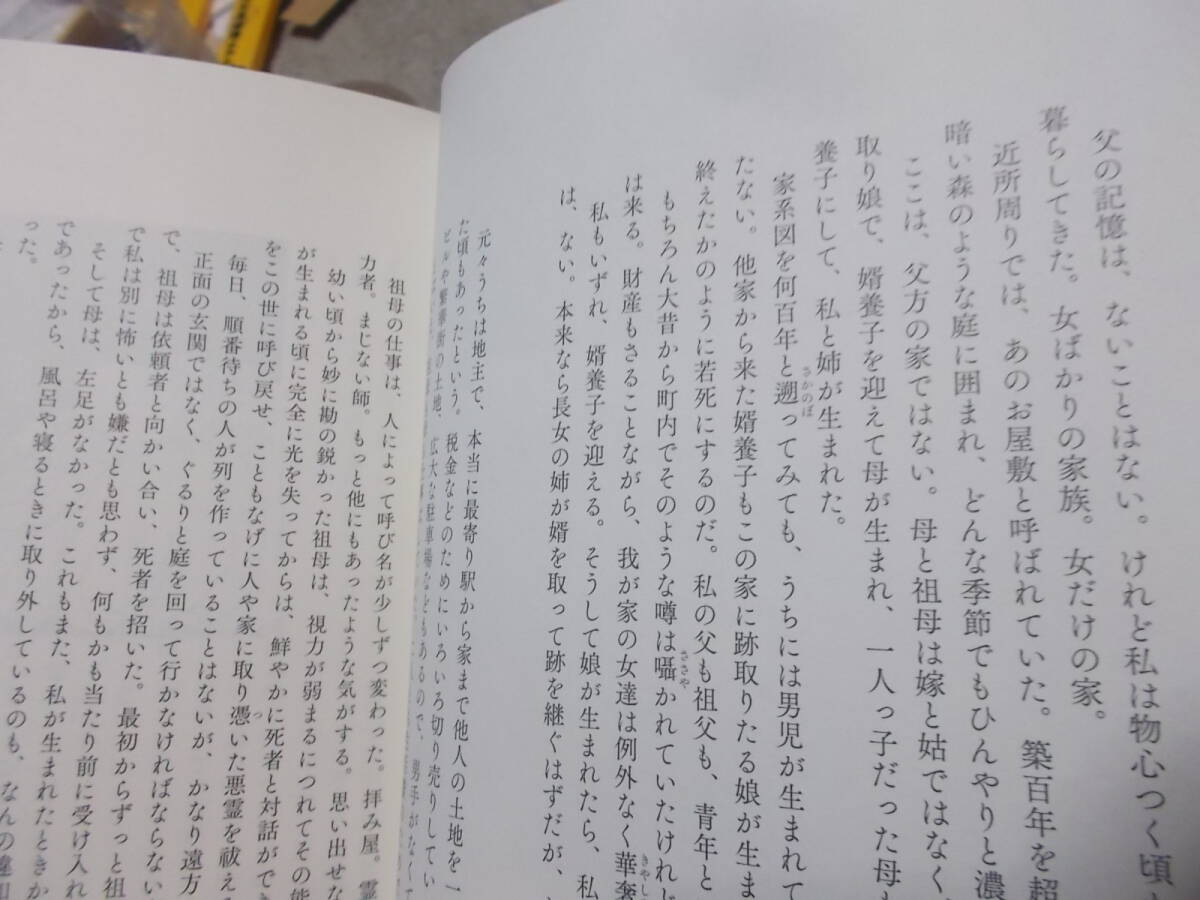 父の記憶は、ないことはない。けれど私は物心つく頃
暮らしてきた。女ばかりの家族。女だけの家。
近所周りでは、あのお屋敷と呼ばれていた。築百年を超
暗い森のような庭に囲まれ、どんな季節でもひんやりと濃
ここは、父方の家ではない。母と祖母は嫁と姑ではなく、
取り娘で、婿養子を迎えて母が生まれ、一人っ子だった母も
養子にして、私と姉が生まれた。
家系図を何百年と遡ってみても、うちには男児が生まれて
さかのぼ
たない。他家から来た婿養子もこの家に跡取りたる娘が生ま
終えたかのように若死にするのだ。私の父も祖父も、青年と
もちろん大昔から町内でそのような噂は囁かれていたけれど
ささや
は来る。財産もさることながら、我が家の女達は例外なく華奢
きゃし
私もいずれ、婿養子を迎える。そうして娘が生まれたら、私
は、ない。本来なら長女の姉が婿を取って跡を継ぐはずだが、
元々うちは地主で、本当に最寄り駅から家まで他人の土地を一
た頃もあったという。税金などのためにいろいろ切り売りしてい
ビルや繁華街の土地、広大な駐車場などもあるので、男手がなくて
祖母の仕事は、人によって呼び名が少しずつ変わった。拝み屋。霊
力者。まじない師。もっと他にもあったような気がする。思い出せな
幼い頃から妙に勘の鋭かった祖母は、視力が弱まるにつれてその能
が生まれる頃に完全に光を失ってからは、鮮やかに死者と対話ができ
をこの世に呼び戻せ、こともなげに人や家に取り憑いた悪霊を祓え
つ
毎日、順番待ちの人が列を作っていることはないが、かなり遠方
正面の玄関ではなく、ぐるりと庭を回って行かなければならない
で、祖母は依頼者と向かい合い、死者を招いた。最初からずっと祖
で私は別に怖いとも嫌だとも思わず、何もかも当たり前に受け入れ
そして母は、左足がなかった。これもまた、私が生まれたときか
であったから、風呂や寝るときに取り外しているのも、なんの違和
った。